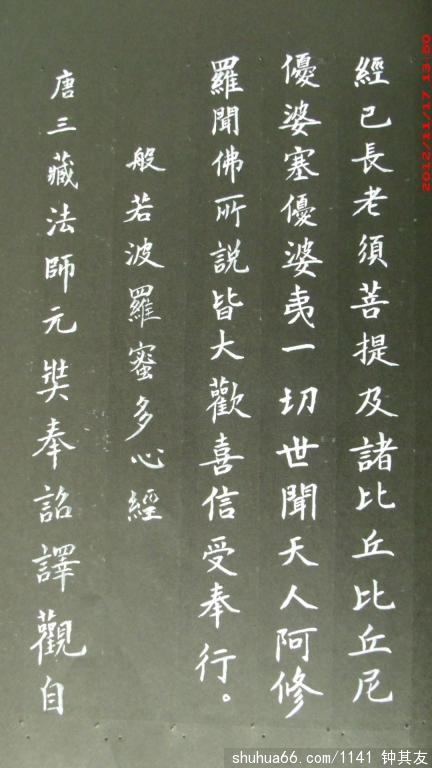 經已長老須菩提及諸比丘比丘尼
優婆塞優婆夷一切世聞天人阿修
羅聞佛所說皆大歡喜信受奉行。
般若波羅蜜多心經
唐三藏法師元奘奉詔譯觀自
2012/11/17 13:50
shuhua66.com/1141 钟其友